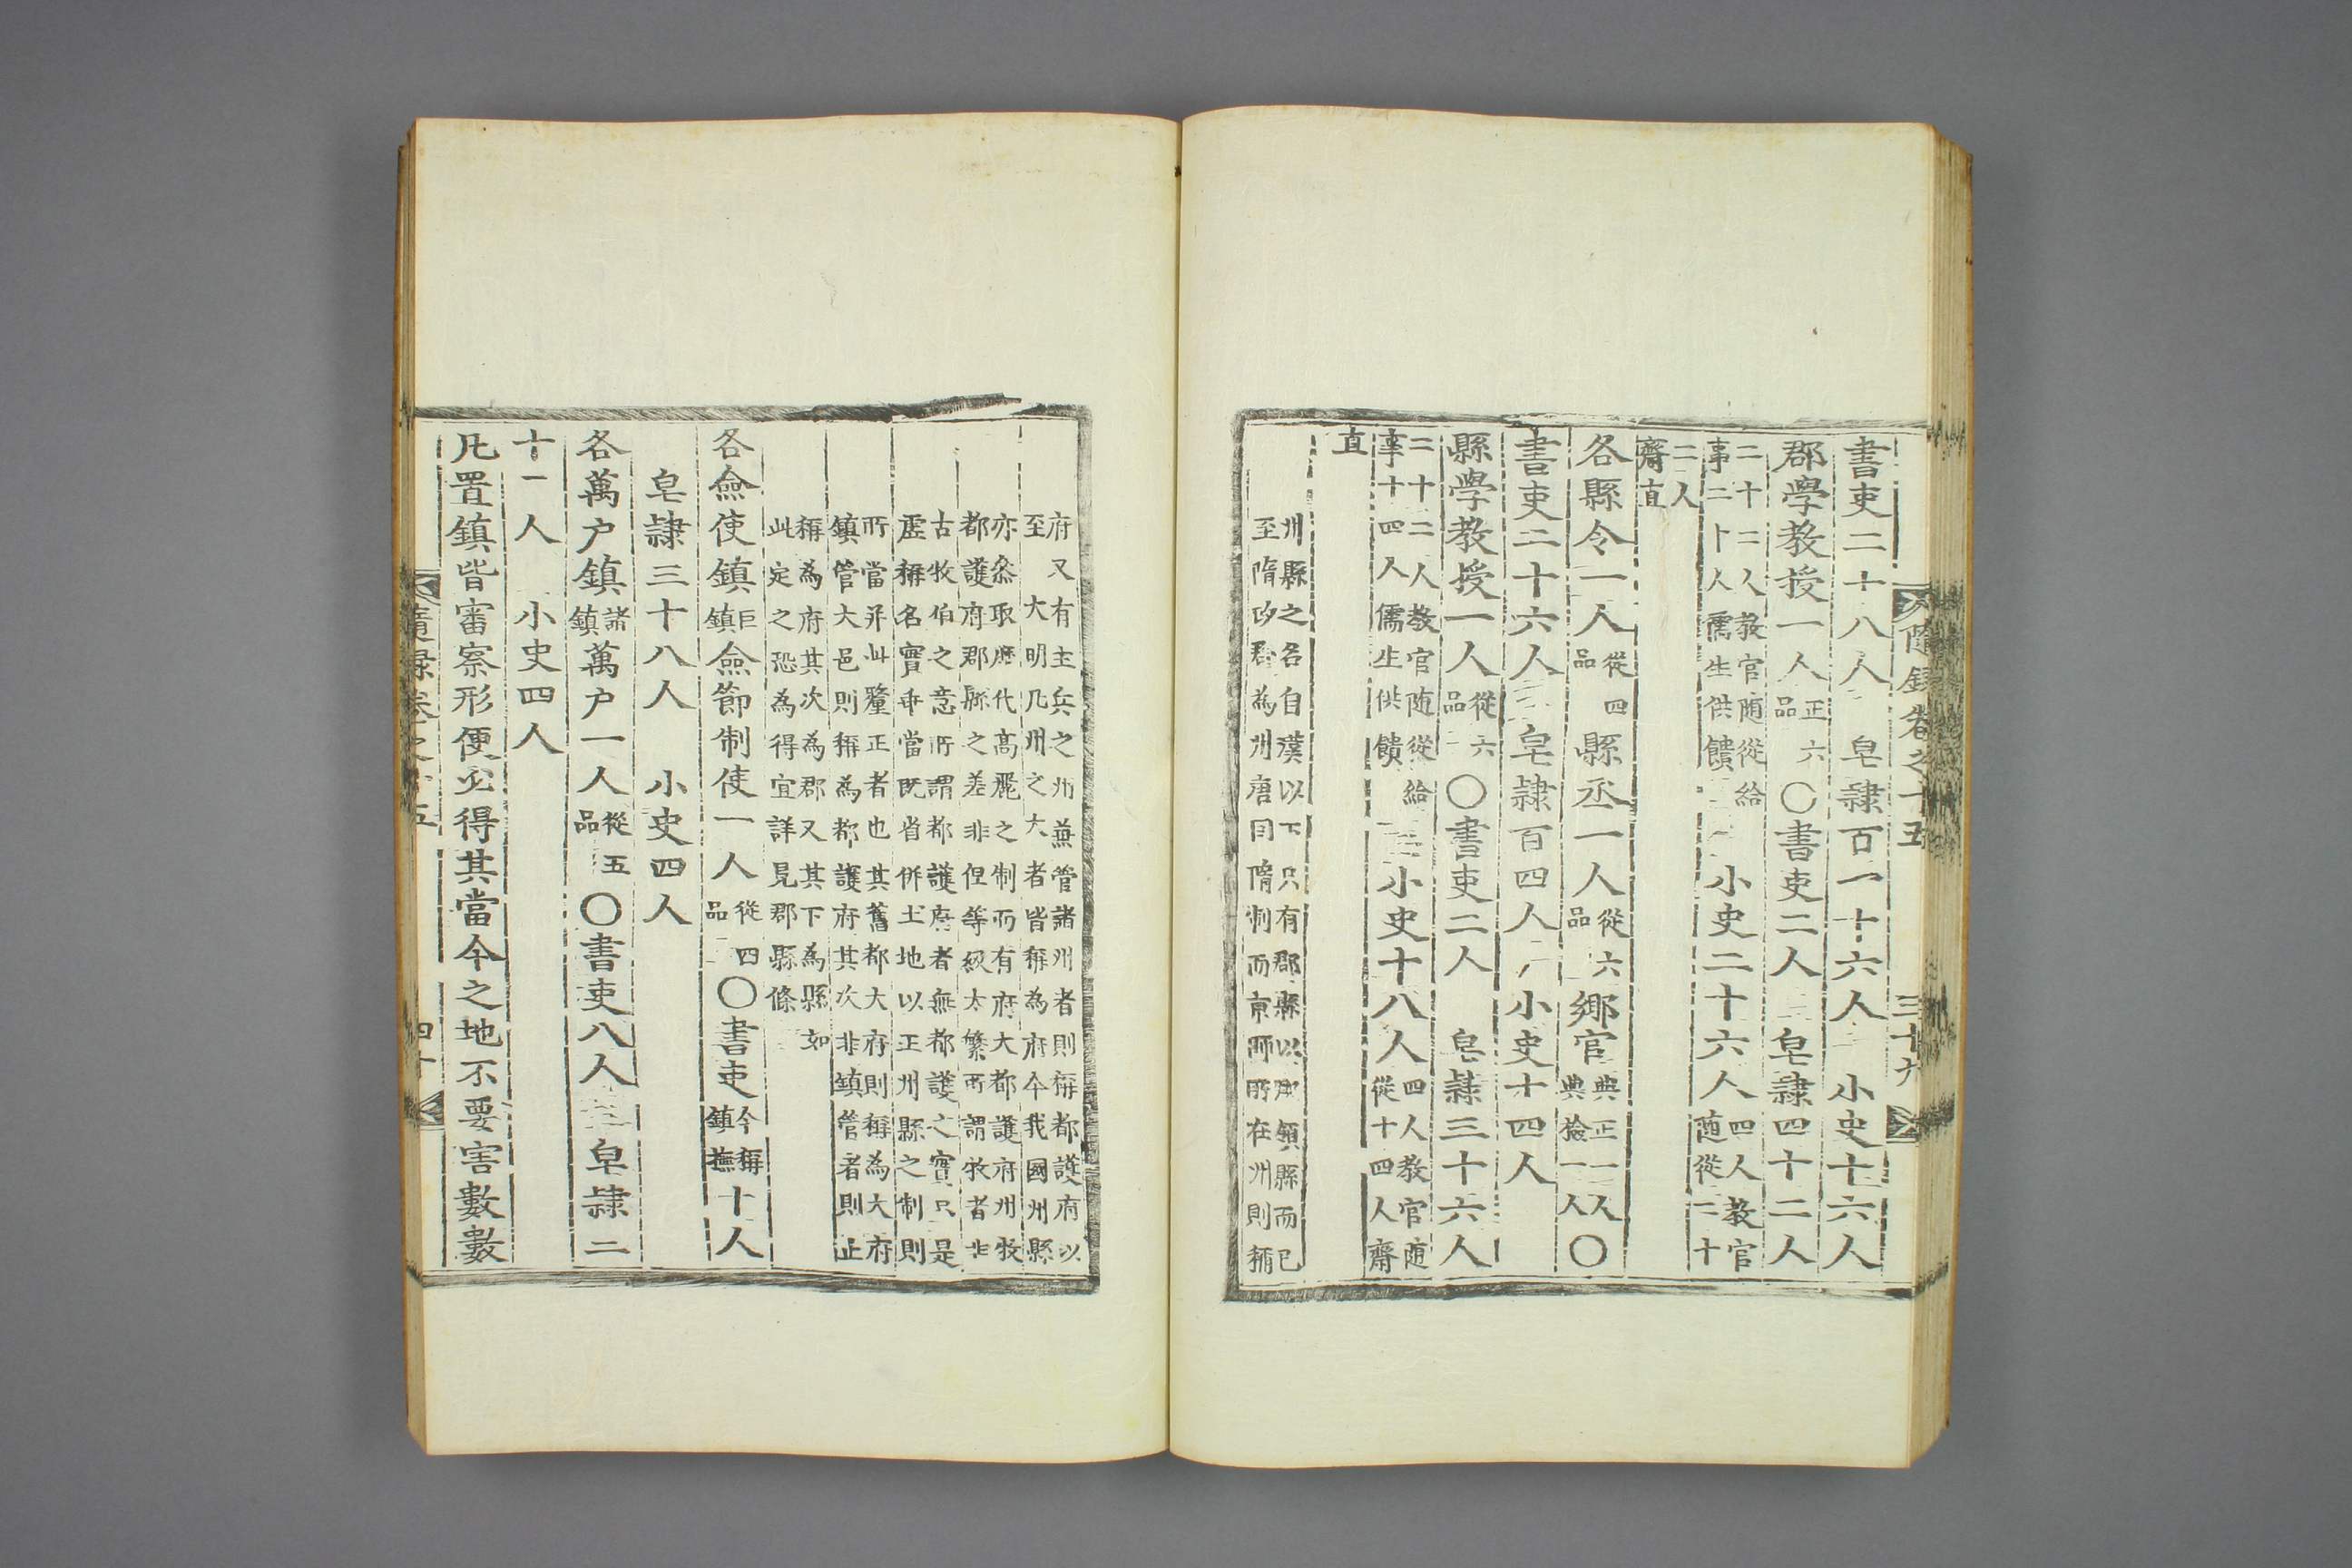 書吏二十八人 皂隷百一十六人 小史十六人
郡學敎授一人正六品〇書吏二人 皂隷四十二人
二十二人敎官随從給事二十人儒生供饋 小史二十六人四人敎官随從二十
二人齋直
各縣令一人從四品 縣丞一人從六品 鄉官典正一人典檢一人〇
書吏二十六人 皂隷百四人 小史十四人
縣學敎授一人從六品〇書吏二人 皂隷三十六人
二十二人敎官随從給事十四人儒生供饋 小史十八人四人敎官随從十四人齋
直
州縣之名自漢以下只有郡縣以郡領縣而已
至隋改郡為州唐因隋制而京師所在州則稱
隨錄卷之十五 三十九
府又有主兵之州兼管諸州者則稱都護府以
至大明凡州之大者皆稱為府今我國州縣
亦叅取麗代高麗之制而有府大都護府州牧
都護府郡縣之差非但等級太繁所謂牧者非
古牧伯之意所謂都護府者無都護之實只是
虛稱名實乖當旣省併土地以正州縣之制則
所當并此釐正者也其舊都大府則稱為大府
鎮管大邑則稱為都護府其次非鎮管者則止
稱為府其次為郡又其下為縣如
此定之恐為得宜詳見郡縣條
各僉使鎮巨鎮僉節制使一人從四品〇書吏今稱鎮撫十人
皂隷三十八人 小史四人
各萬户鎮諸鎮萬户一人從五品〇書吏八人 皂隷二
十一人 小史四人
凡置鎮皆審察形便必得其當今之地不要害數數
隨錄卷之十五 四十